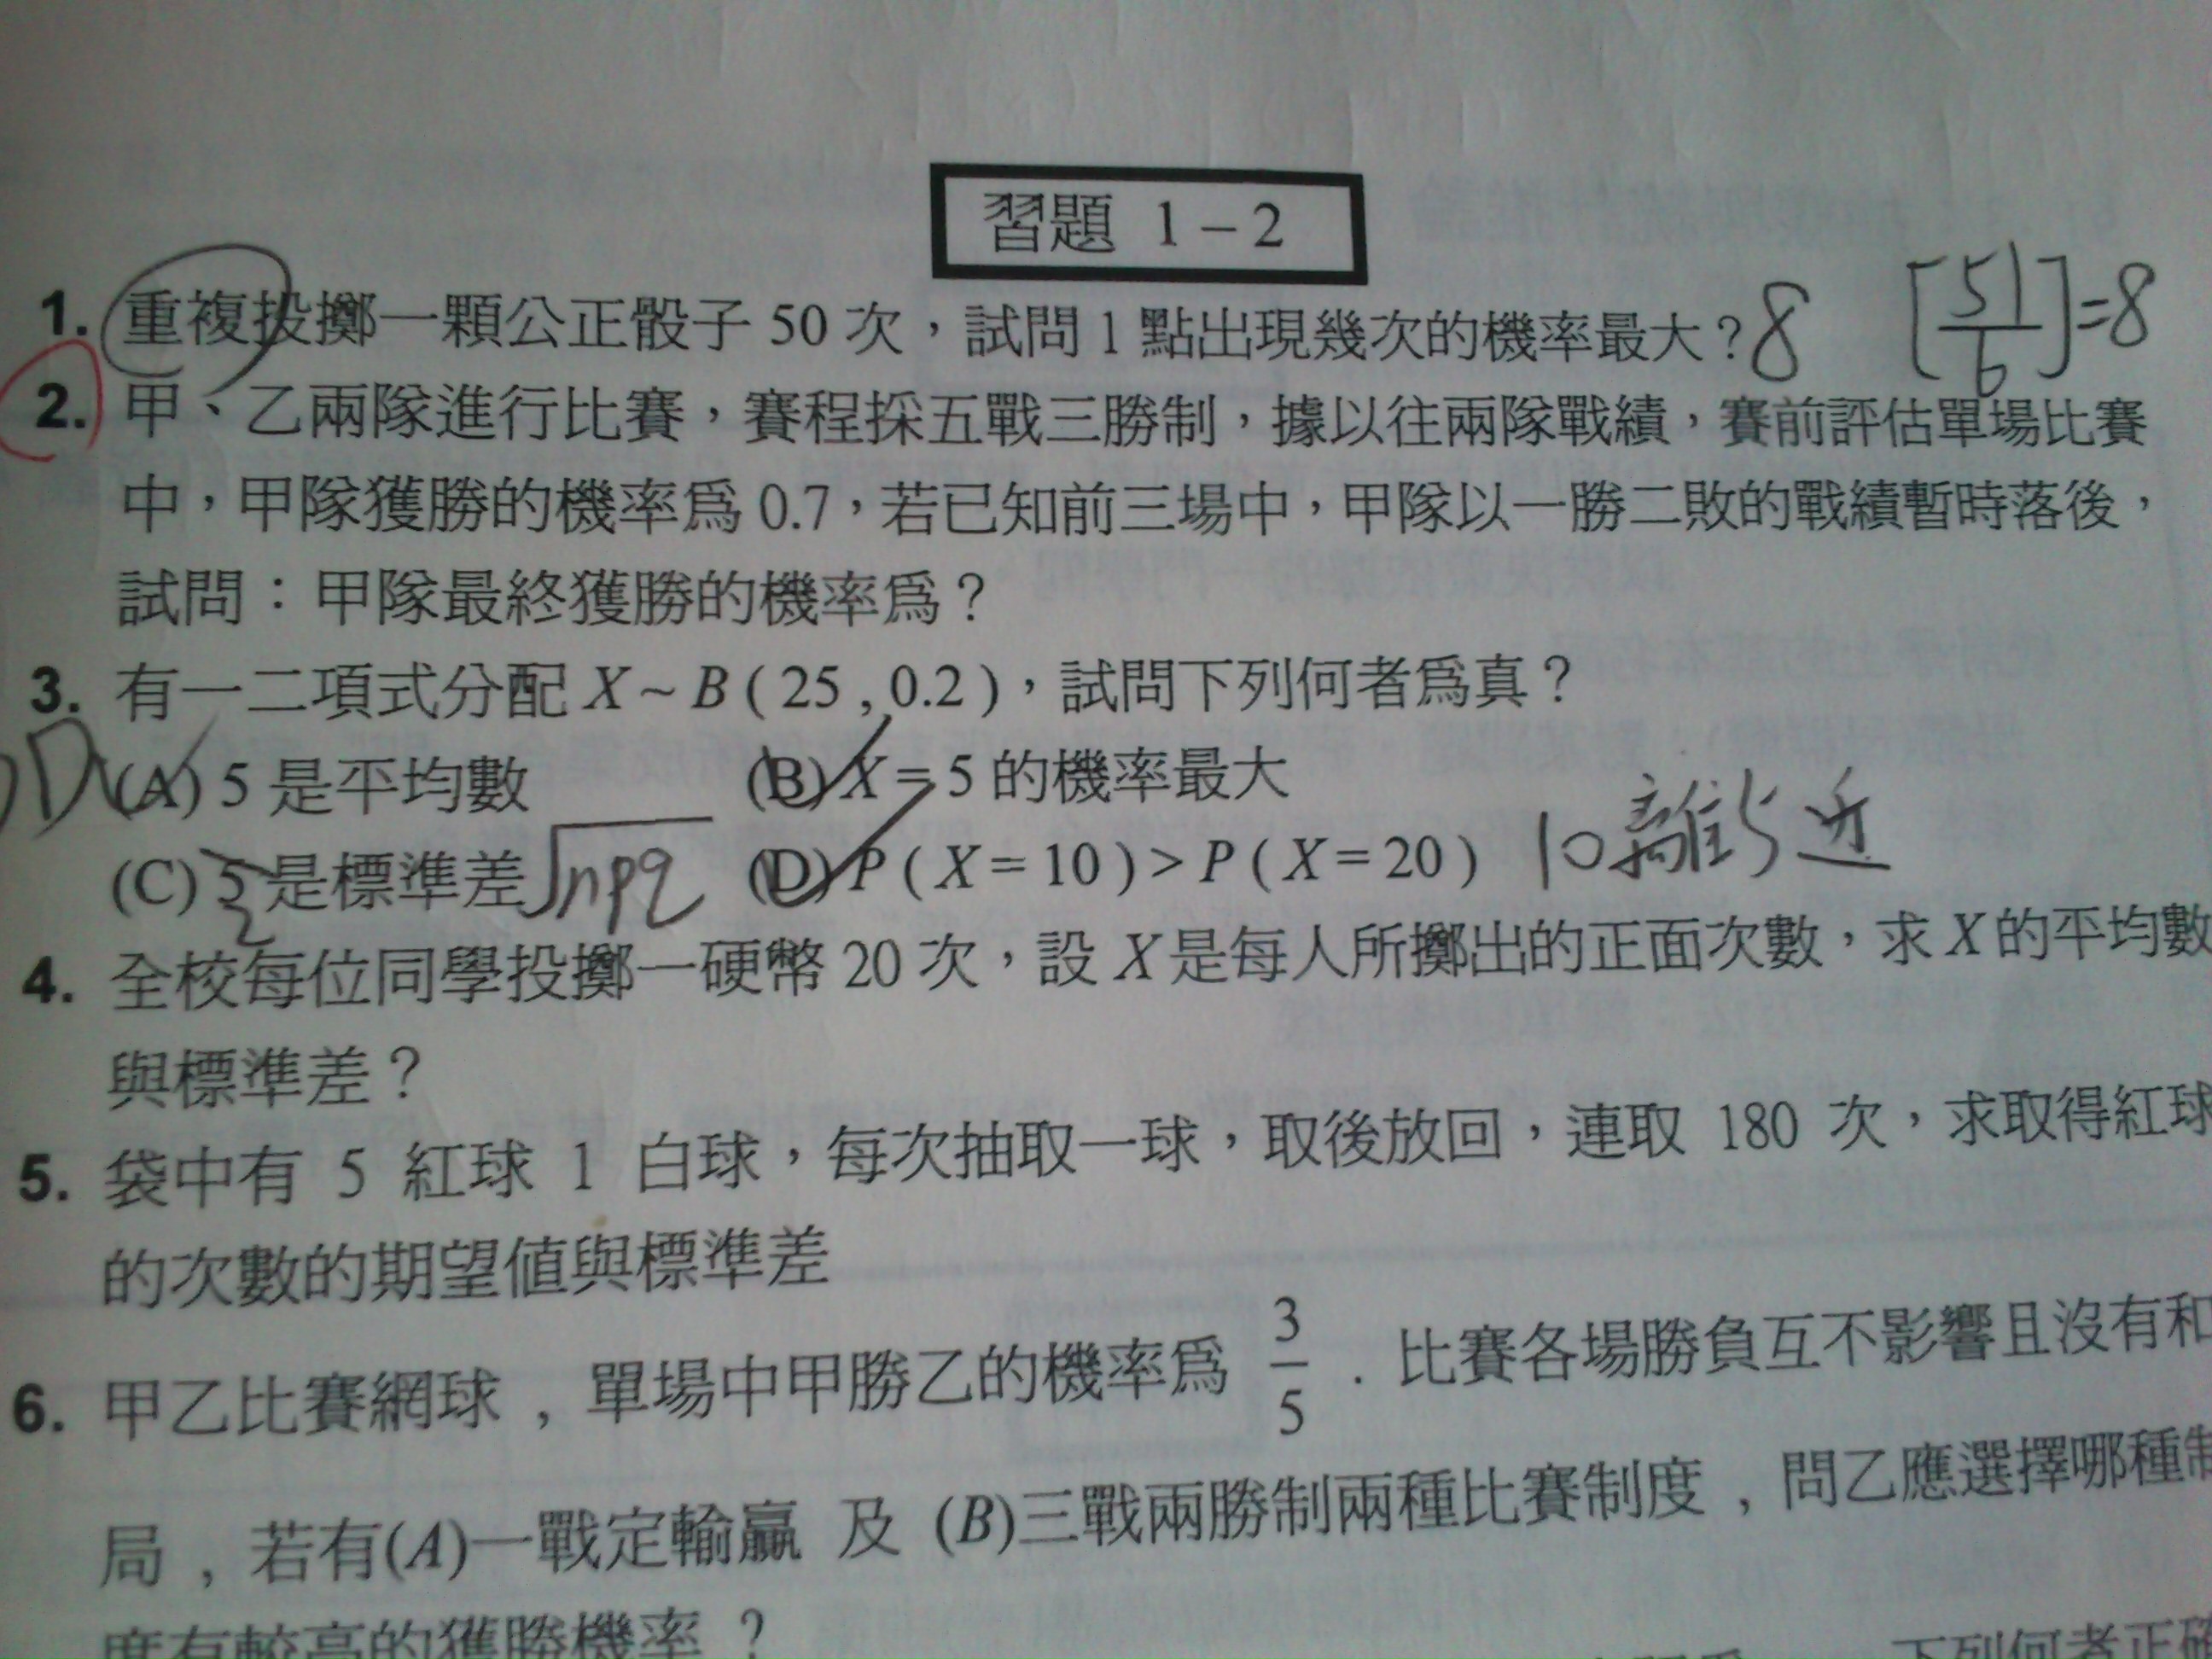 習題 1－2
1. 重複投擲一顆公正骰子 50 次，試問 1 點出現幾次的機率最大？8 [51/6]=8
2. 甲、乙兩隊進行比賽，賽程採五戰三勝制，據以往兩隊戰績，賽前評估單場比賽
中，甲隊獲勝的機率爲 0.7，若已知前三場中，甲隊以一勝二敗的戰績暫時落後，
試問：甲隊最終獲勝的機率爲？
3. 有一二項式分配 X ~ B ( 25 , 0.2 )，試問下列何者爲真？
D (A) 5 是平均數 (B) X = 5 的機率最大
(C) 5 是標準差 √npq (D) P ( X = 10 ) > P ( X = 20 ) 10離5近
2
4. 全校每位同學投擲一硬幣 20 次，設 X 是每人所擲出的正面次數，求 X 的平均數
與標準差？
5. 袋中有 5 紅球 1 白球，每次抽取一球，取後放回，連取 180 次，求取得紅球
的次數的期望値與標準差
6. 甲乙比賽網球，單場中甲勝乙的機率爲 3/5．比賽各場勝負互不影響且沒有和
局，若有(A)一戰定輸贏 及 (B)三戰兩勝制兩種比賽制度，問乙應選擇哪種制
度有較高的獲勝機率？
下列何者正確